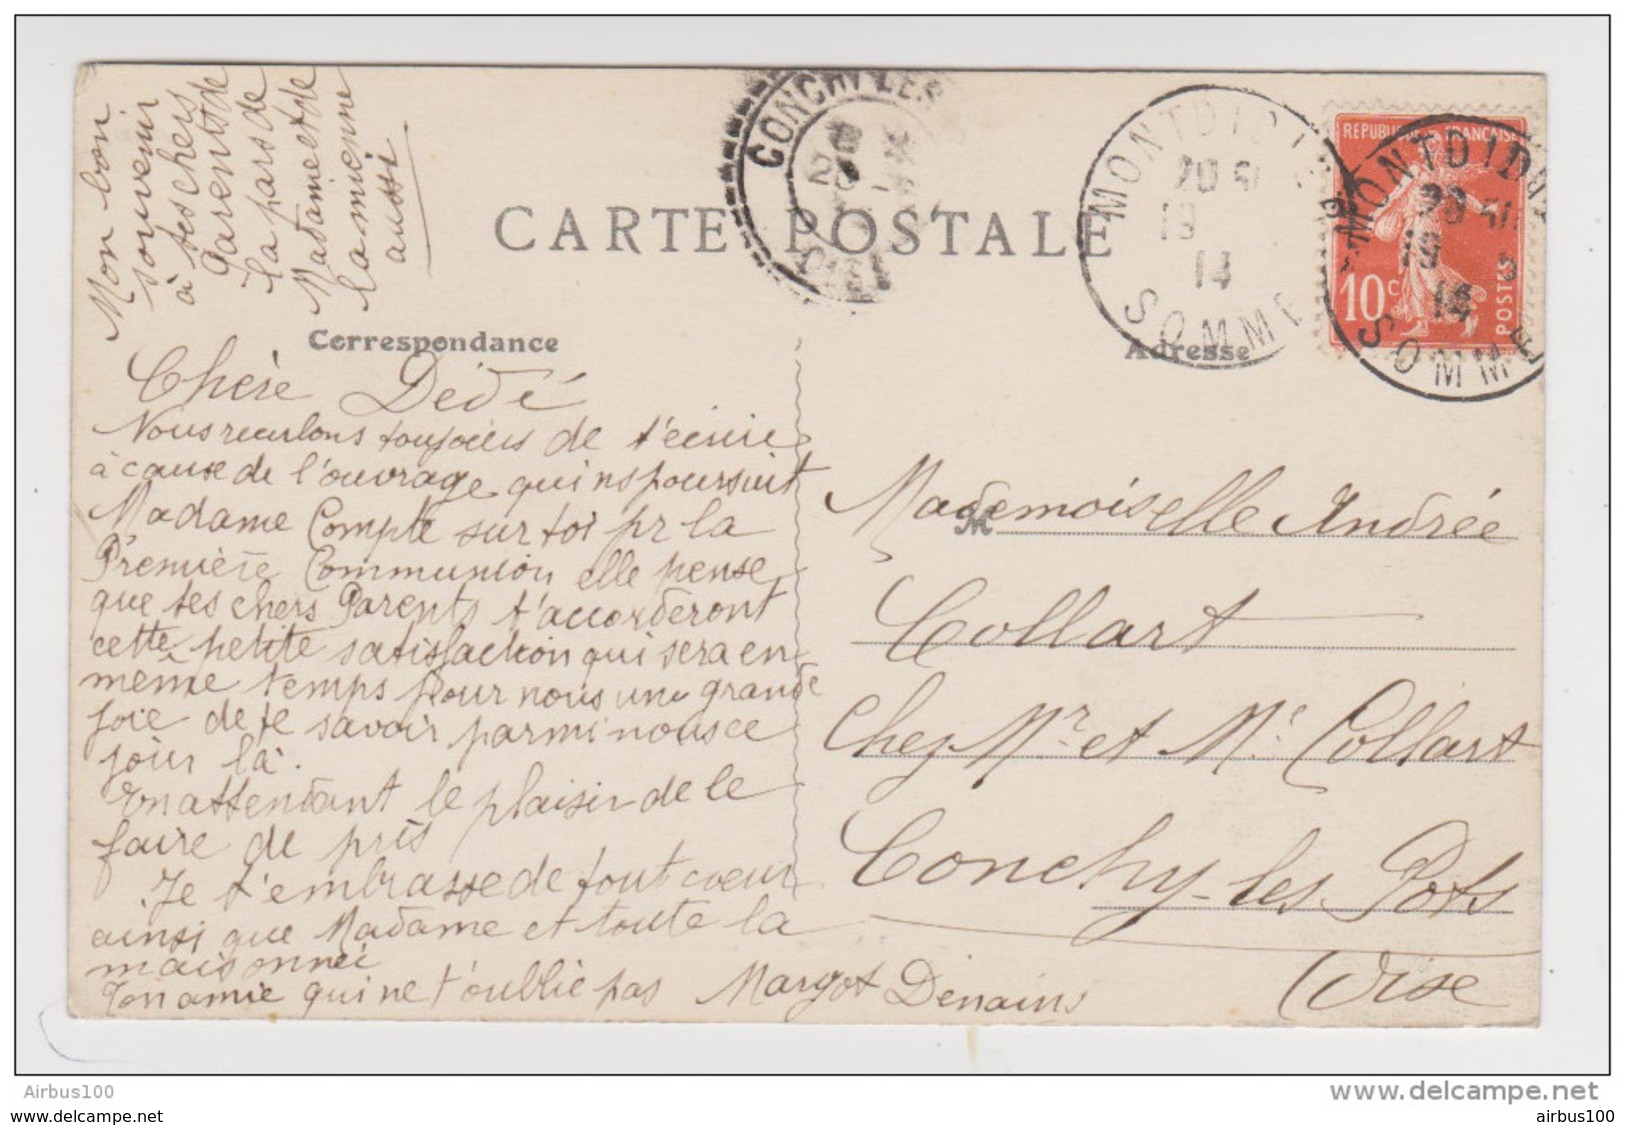 Mon bon
souvenir
à tes chers
Parents de
la pars de
Madame et de
la mienne
aussi
CARTE POSTALE
CONCHY LES
MONTDIDIER
20
19
14
SOMME
REPUBLIQUE FRANÇAISE
10c
POSTES
MONTDIDI
20
19 3
14
SOMME
Correspondance
Adresse
Chère Dédé
Nous reculons toujours de t'écrire
à cause de l'ouvrage qui ns poursuit
Madame Compte sur toi pr la
Première Communion elle pense
que tes chers Parents t'accorderont
cette petite satisfaction qui sera en
même temps pour nous une grande
joie de te savoir parmi nous ce
jour là.
En attendant le plaisir de le
faire de près
Je t'embrasse de tout coeur
ainsi que Madame et toute la
maisonnée
Ton amie qui ne t'oublie pas Margot Denains
M
Mademoiselle Andrée
Collart
Chez Mr et Me Collart
Conchy-les Pots
Oise
Airbus100
www.delcampe.net
airbus100
http://www.delcampe.net